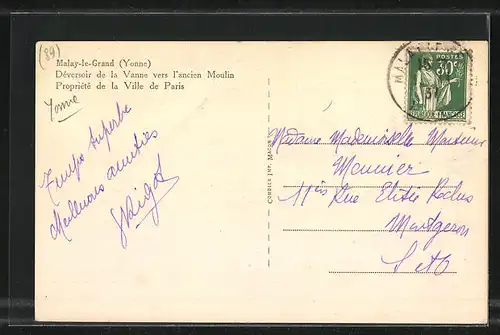 (89)
Malay-le-Grand (Yonne)
Déversoir de la Vanne vers l'ancien Moulin
Propriété de la Ville de Paris
Yonne
Temps superbe
Meilleures amitiés
MALAY
POSTES
30c
Madame Mademoiselle Monsieur
Meunier
11bis Rue Elisée Reclus
Montgeron
S et O